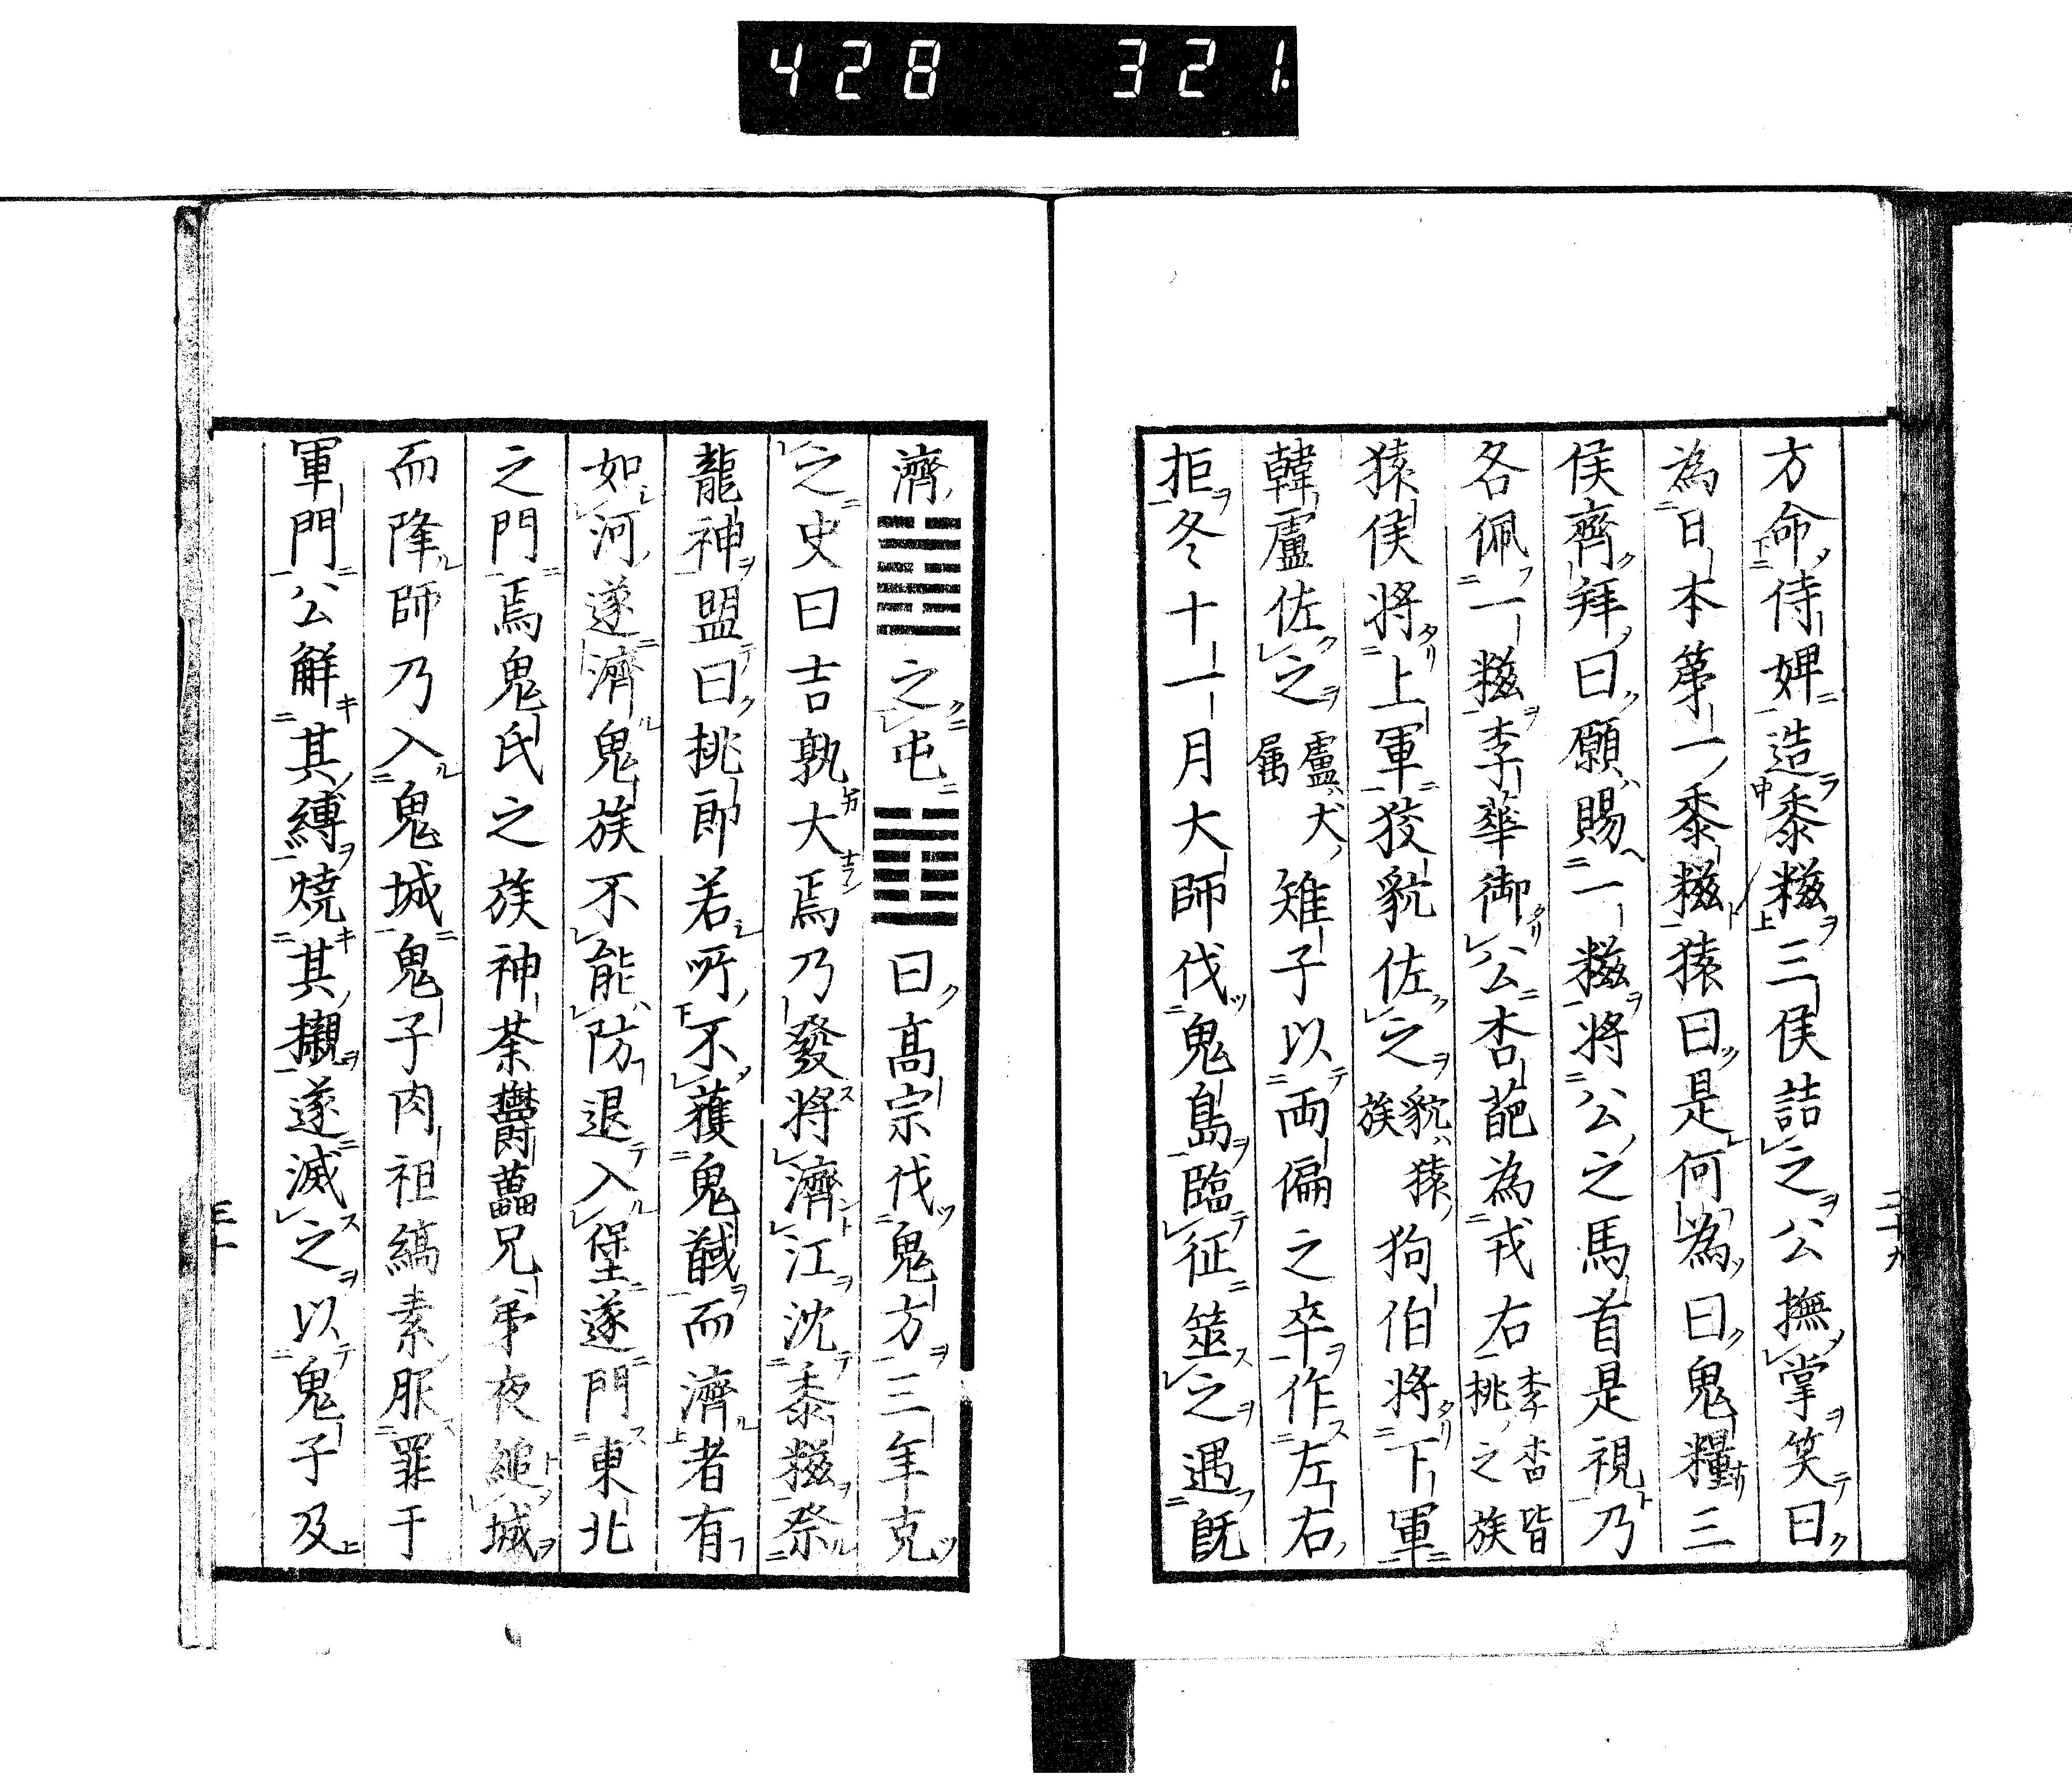 428 321.
方命侍婢造黍糍三侯詰之公撫掌笑曰
為日本第一黍糍猿曰是何為曰鬼糧三
侯齊拜曰願賜一糍將公之馬首是視乃
各佩一糍李華御公杏葩為戎右李杏皆桃之族
猿侯將上軍狡貁佐之貁猿族狗伯將下軍
韓盧佐之盧犬属雉子以両偏之卒作左右
拒冬十一月大師伐鬼島臨征筮之遇既
二十九
濟䷾之屯䷂曰高宗伐鬼方三年克
之史曰吉孰大焉乃發將濟江沈黍糍祭
龍神盟曰桃即若所不獲鬼馘而濟者有
如河遂濟鬼族不能防退入堡遂門東北
之門焉鬼氏之族神荼欝藟兄弟夜縋城
而降師乃入鬼城鬼子肉袒縞素服罪于
軍門公解其縛燒其櫬遂滅之以鬼子及
三十